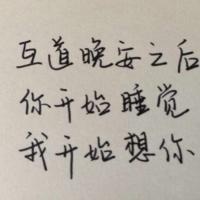 互道晚安之后
你开始睡觉
我开始想你